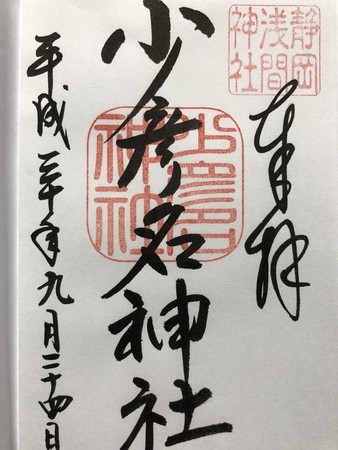 静岡
浅間
神社
奉拝
少彦名神社
平成三十年九月二十四日